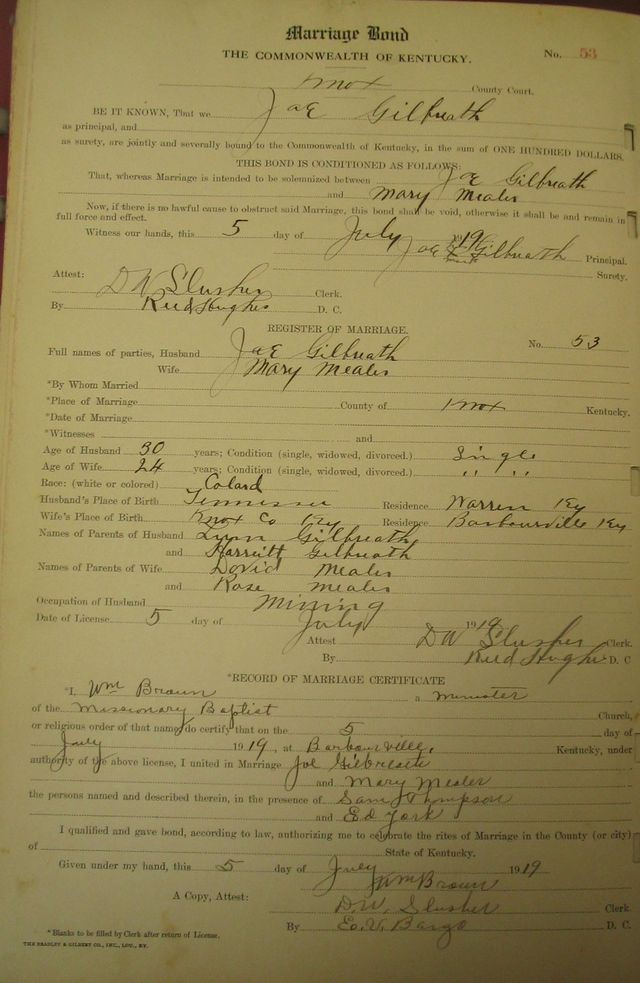 Marriage Bond
THE COMMONWEALTH OF KENTUCKY.
No. 53
Knox County Court.
BE IT KNOWN, That we Joe Gilbreath
as principal, and
as surety, are jointly and severally bound to the Commonwealth of Kentucky, in the sum of ONE HUNDRED DOLLARS.
THIS BOND IS CONDITIONED AS FOLLOWS:
That, whereas Marriage is intended to be solemnized between Joe Gilbreath
and Mary Mealer
Now, if there is no lawful cause to obstruct said Marriage, this bond shall be void, otherwise it shall be and remain in
full force and effect.
Witness our hands, this 5 day of July 1919
Joe Gilbreath Principal.
Surety.
Attest:
D W Slusher Clerk.
By Reed Hughes D. C.
REGISTER OF MARRIAGE.
No. 53
Full names of parties, Husband Joe Gilbreath
Wife Mary Mealer
*By Whom Married
*Place of Marriage County of Knox Kentucky.
*Date of Marriage
*Witnesses and
Age of Husband 30 years; Condition (single, widowed, divorced.) Single
Age of Wife 24 years; Condition (single, widowed, divorced.) " "
Race: (white or colored) Colard
Husband's Place of Birth Tennessee Residence Warren Ky
Wife's Place of Birth Knox Co Ky Residence Barbourville Ky
Names of Parents of Husband Gilbreath
and Harriett Gilbreath
Names of Parents of Wife David Mealer
and Rose Mealer
Occupation of Husband Mining
Date of License 5 day of July 1919
Attest D W Slusher Clerk.
By Reed Hughes D. C
*RECORD OF MARRIAGE CERTIFICATE
*I, Wm Brown a Minister
of the Missionary Baptist Church,
or religious order of that name, do certify that on the 5 day of
July 1919, at Barbourville, Kentucky, under
authority of the above license, I united in Marriage Joe Gilbreath
and Mary Mealer
the persons named and described therein, in the presence of Sam Thompson
and Ed York
I qualified and gave bond, according to law, authorizing me to celebrate the rites of Marriage in the County (or city)
of State of Kentucky.
Given under my hand, this 5 day of July 1919
Wm Brown
A Copy, Attest: D. W. Slusher Clerk.
By E. V. Bargo D. C.
*Blanks to be filled by Clerk after return of License.
THE BRADLEY & GILBERT CO., INC., LOU., KY.